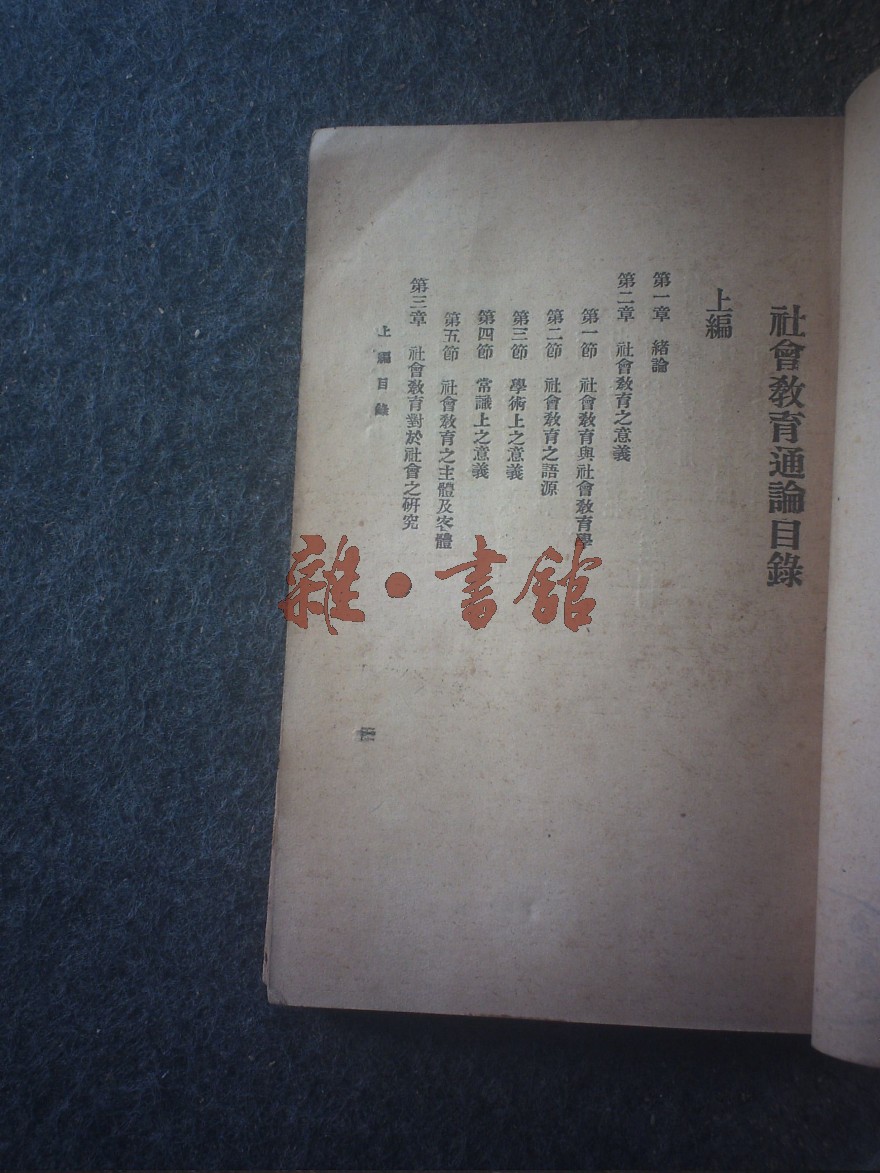 社會敎育通論目錄
上編
第一章 緒論
第二章 社會敎育之意義
第一節 社會敎育與社會敎育學
第二節 社會敎育之語源
第三節 學術上之意義
第四節 常識上之意義
第五節 社會敎育之主體及客體
第三章 社會敎育對於社會之硏究
上編目錄
雜·書館